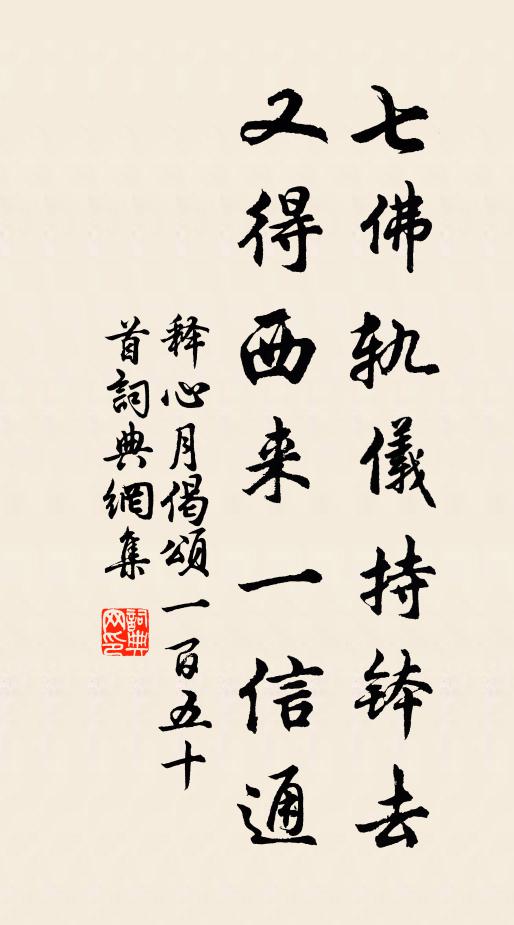 七佛轨儀持钵去
又得西来一信通
释心月偈頌一百五十
首詞典網集
詞典
网印